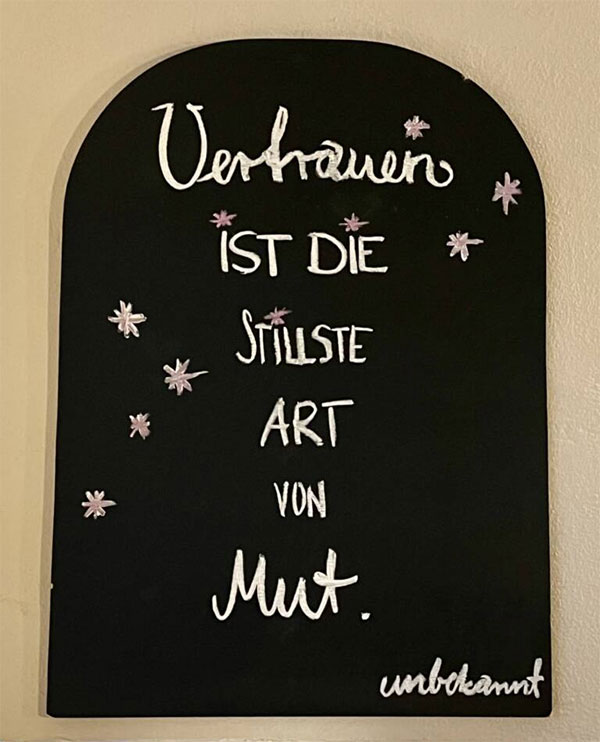 Vertrauen
IST DIE
STILLSTE
ART
VON
Mut.
unbekannt